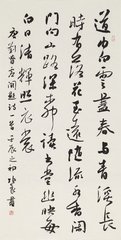 道由白雲盡春與青溪長
時有落花至遠隨流水香閑
門向山路深柳讀書堂幽映每
白日清輝照衣裳
唐劉眘虛闕題詩一首壬辰之初